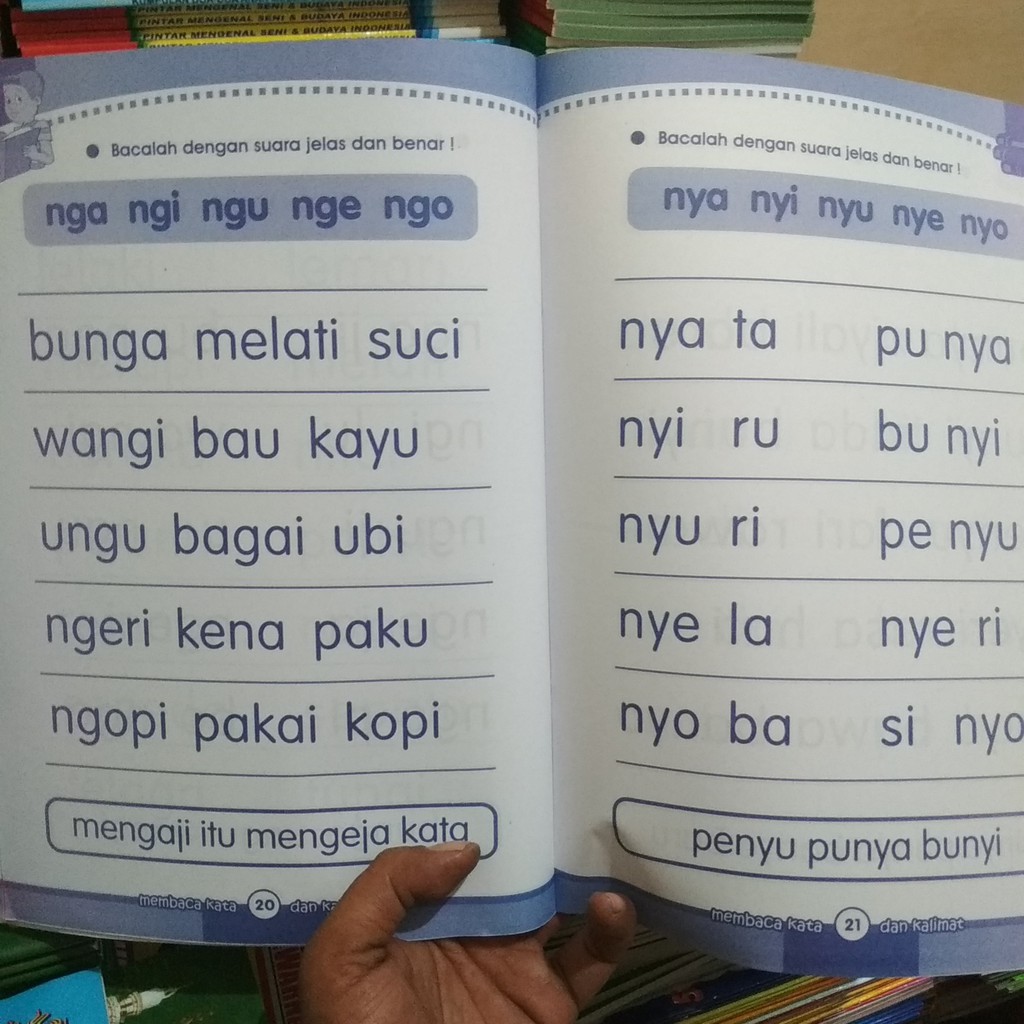 PINTAR MENGENAL SENI & BUDAYA INDONESIA
PINTAR MENGENAL SENI & BUDAYA INDONESIA
Bacalah dengan suara jelas dan benar !
nga ngi ngu nge ngo
bunga melati suci
wangi bau kayu
ungu bagai ubi
ngeri kena paku
ngopi pakai kopi
mengaji itu mengeja kata
membaca kata 20 dan
Bacalah dengan suara jelas dan benar !
nya nyi nyu nye nyo
nya ta pu nya
nyi ru bu nyi
nyu ri pe nyu
nye la nye ri
nyo ba si nyo
penyu punya bunyi
membaca kata 21 dan kalimat